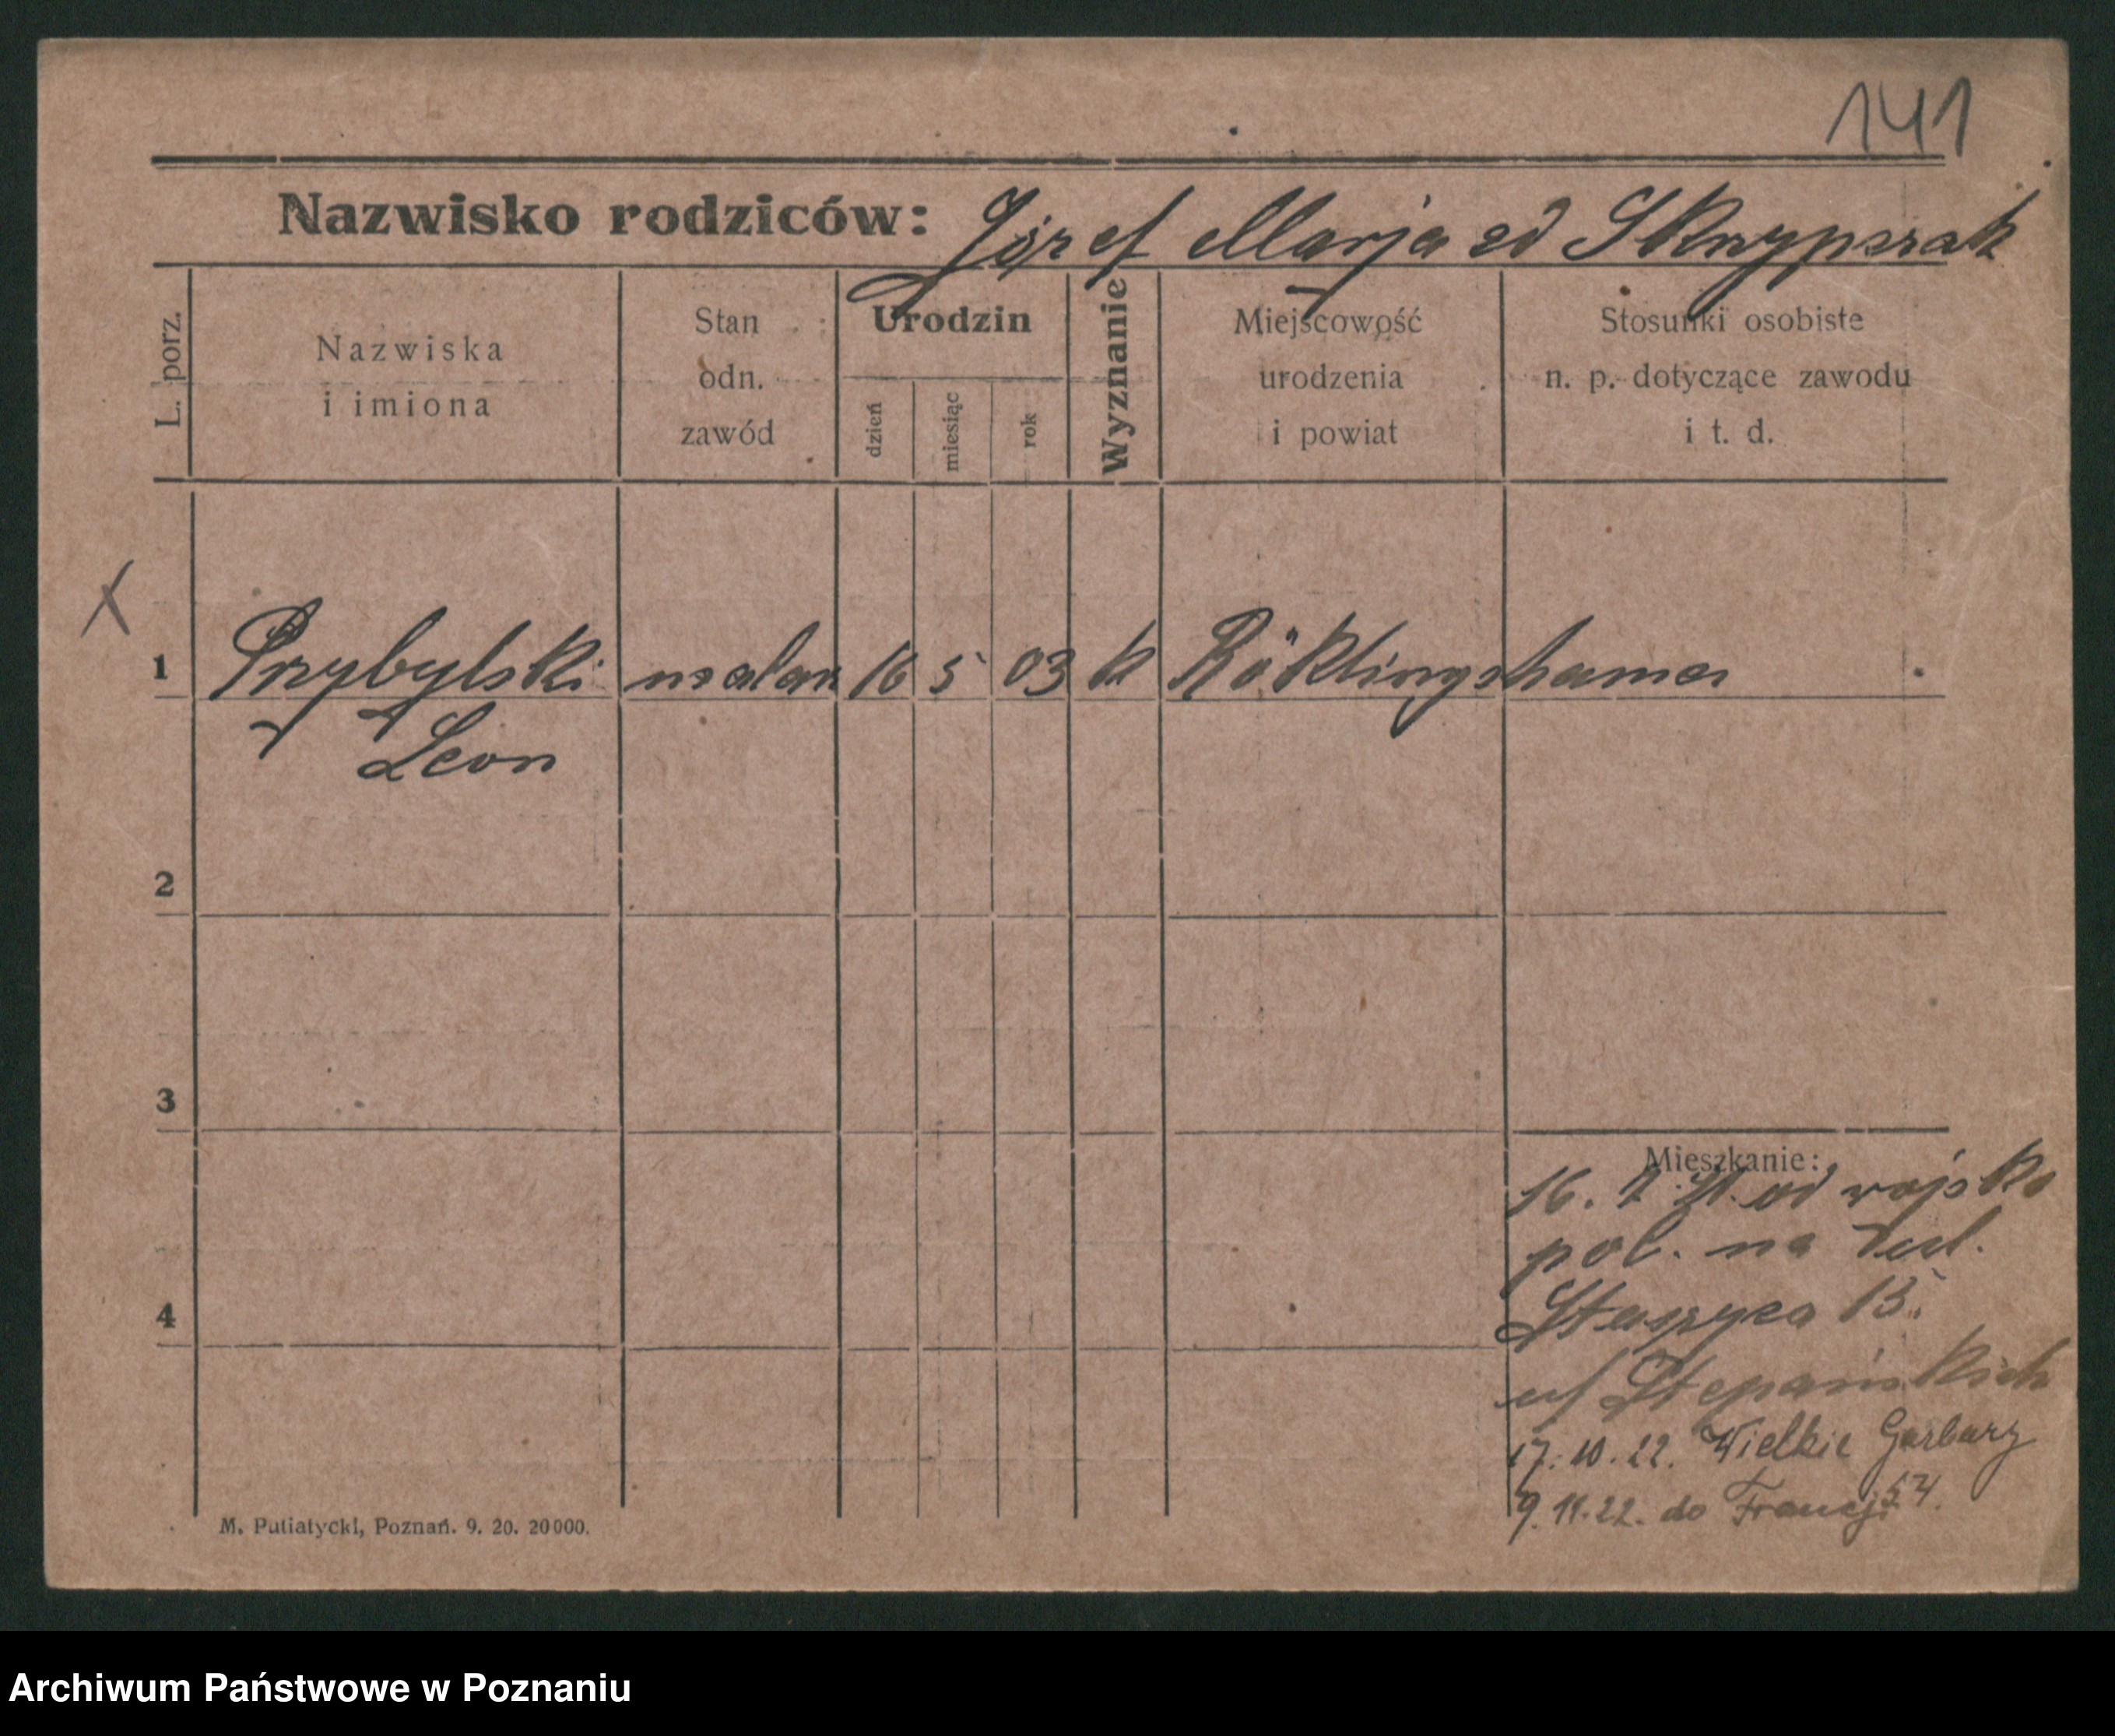 141
Nazwisko rodziców: Józef Marja zd Skrzypszak
L. porz.
Nazwiska
i imiona
Stan
odn.
zawód
Urodzin
dzień
miesiąc
rok
Wyznanie
Miejscowość
urodzenia
i powiat
Stosunki osobiste
n. p. dotyczące zawodu
i t. d.
X
1 Przybylski malarz 16 5 03 k Röklingshamer
Leon
2
3
4
Mieszkanie:
16. 2. 21. od wojska
pol. na
Staszyca 15.
17. 10. 22. Wielkie Garbary
54.
9. 11. 22. do Francji
M. Putiatycki, Poznań. 9. 20. 20000.
Archiwum Państwowe w Poznaniu